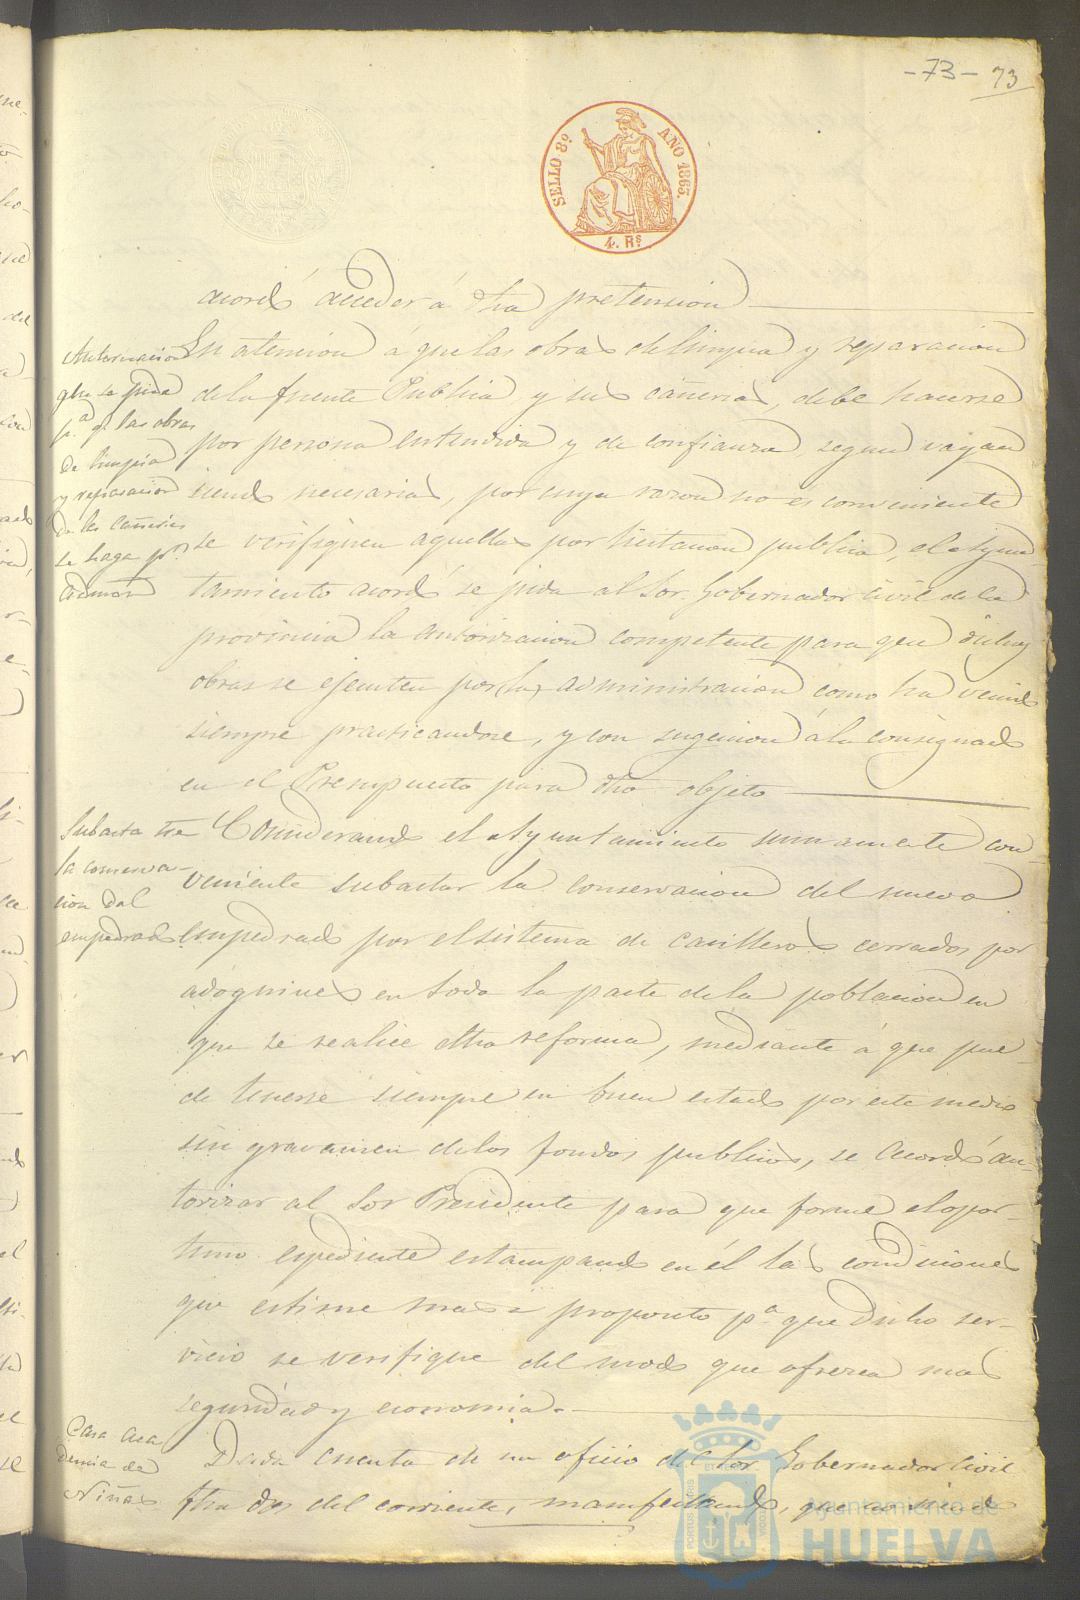 -73- 73
SELLO 8º AÑO 1865.
4. Rs
acordó acceder á dha pretension
Autorizacion
que se pida
p.a q.e las obras
de limpia
y reparacion
de las cañerias
se haga p.r
admon
En atencion á que las obras de limpia y reparacion
de la fuente Publica y sus cañerias, debe hacerse
por persona entendida y de confianza segun vayan
siendo necesarias, por cuya razon no es conveniente
se verifiquen aquellas por licitacion publica, el Ayun
tamiento acordó se pida al Sor. Gobernador Civil de la
provincia la autorizacion competente para que dichas
obras se ejecuten por la administracion como ha venido
siempre practicandose, y con sugecion á lo consignado
en el Presupuesto para dho objeto
Subasta de
la conserva-
cion del
empedrado
Considerando el Ayuntamiento sumamente con-
veniente subastar la conservacion del nuevo
empedrado por el sistema de casilleros cerrados por
adoquines en toda la parte de la poblacion en
que se realice dha reforma, mediante á que pue-
de tenerse siempre en buen estado por este medio
sin gravamen de los fondos publicos, se acordó au-
torizar al Sor Presidente para que forme el opor-
tuno espediente estampando en él las condiciones
que estime mas á proposito p.a que dicho ser-
vicio se verifique del modo que ofrezca mas
seguridad y economia.
Casa aca
demia de
Niñas
Dada cuenta de un oficio del Sor Gobernador Civil
fha dos del corriente, manifestando, que no siendo
Ayuntamiento de
HUELVA